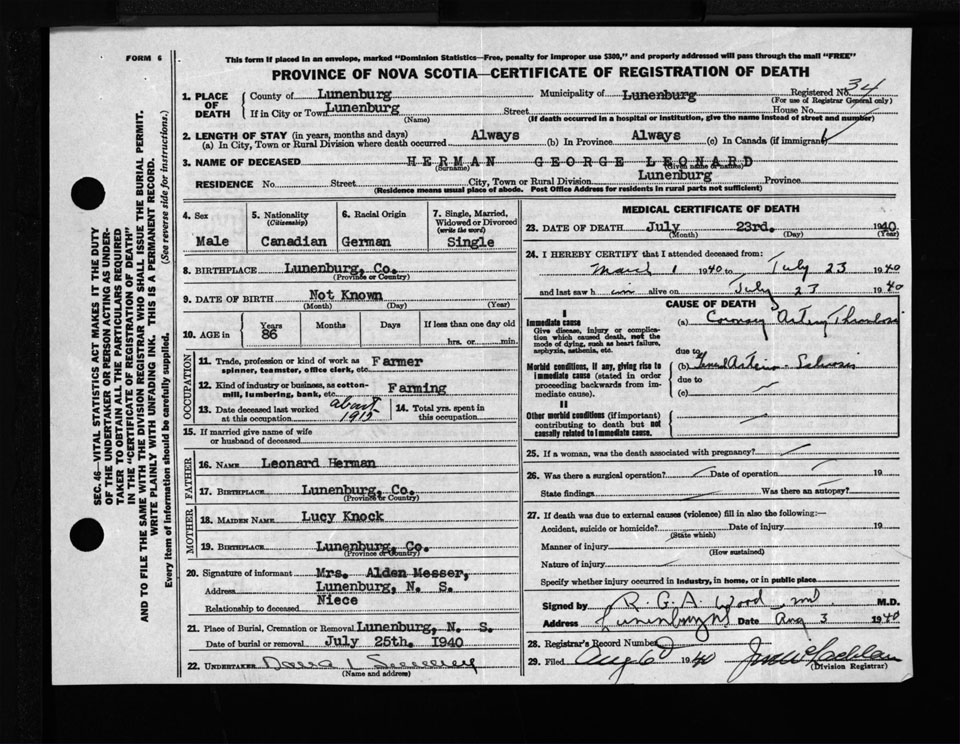 FORM 6
This form if placed in an envelope, marked "Dominion Statistics—Free, penalty for improper use $300," and properly addressed will pass through the mail "FREE"
PROVINCE OF NOVA SCOTIA—CERTIFICATE OF REGISTRATION OF DEATH
SEC. 46—VITAL STATISTICS ACT MAKES IT THE DUTY
OF THE UNDERTAKER OR PERSON ACTING AS UNDER-
TAKER TO OBTAIN ALL THE PARTICULARS REQUIRED
IN THE "CERTIFICATE OF REGISTRATION OF DEATH"
AND TO FILE THE SAME WITH THE DIVISION REGISTRAR WHO SHALL ISSUE THE BURIAL PERMIT.
WRITE PLAINLY WITH UNFADING INK. THIS IS A PERMANENT RECORD.
Every item of information should be carefully supplied. (See reverse side for instructions.)
1. PLACE OF DEATH
County of Lunenburg Municipality of Lunenburg Registered No. 34
(For use of Registrar General only)
If in City or Town Lunenburg Street House No.
(Name) (If death occurred in a hospital or institution, give the name instead of street and number)
2. LENGTH OF STAY (in years, months and days)
(a) In City, Town or Rural Division where death occurred Always (b) In Province Always (c) In Canada (if immigrant)
3. NAME OF DECEASED HERMAN GEORGE LEONARD
(Surname) (Given name or names)
RESIDENCE No. Street City, Town or Rural Division Lunenburg Province
(Residence means usual place of abode. Post Office Address for residents in rural parts not sufficient)
4. Sex
Male
5. Nationality
(Citizenship)
Canadian
6. Racial Origin
German
7. Single, Married,
Widowed or Divorced
(write the word)
Single
8. BIRTHPLACE Lunenburg, Co.
(Province or Country)
9. DATE OF BIRTH Not Known
(Month) (Day) (Year)
10. AGE in Years Months Days If less than one day old
86 hrs. or min.
OCCUPATION
11. Trade, profession or kind of work as Farmer
spinner, teamster, office clerk, etc.
12. Kind of industry or business, as cotton-
mill, lumbering, bank, etc. Farming
13. Date deceased last worked
at this occupation about 1912
14. Total yrs. spent in
this occupation
15. If married give name of wife
or husband of deceased
FATHER
16. NAME Leonard Herman
17. BIRTHPLACE Lunenburg, Co.
(Province or Country)
MOTHER
18. MAIDEN NAME Lucy Knock
19. BIRTHPLACE Lunenburg, Co.
(Province or Country)
20. Signature of informant Mrs. Alden Messer,
Address Lunenburg, N. S.
Relationship to deceased Niece
21. Place of Burial, Cremation or Removal Lunenburg, N. S.
Date of burial or removal July 25th. 1940
22. UNDERTAKER
(Name and address)
MEDICAL CERTIFICATE OF DEATH
23. DATE OF DEATH July 23rd. 1940
(Month) (Day) (Year)
24. I HEREBY CERTIFY that I attended deceased from:
March 1 1940 to July 23 1940
and last saw him alive on July 23 1940
CAUSE OF DEATH
I
Immediate cause
Give disease, injury or complica-
tion which caused death, not the
mode of dying, such as heart failure,
asphyxia, asthenia, etc.
(a) Coronary Artery Thrombosis
due to
Morbid conditions, if any, giving rise to
immediate cause (stated in order
proceeding backwards from im-
mediate cause).
(b)
due to
(c)
II
Other morbid conditions (if important)
contributing to death but not
causally related to immediate cause.
25. If a woman, was the death associated with pregnancy?
26. Was there a surgical operation? Date of operation 19
State findings Was there an autopsy?
27. If death was due to external causes (violence) fill in also the following:—
Accident, suicide or homicide? Date of injury 19
(State which)
Manner of injury
(How sustained)
Nature of injury
Specify whether injury occurred in industry, in home, or in public place
Signed by R. G. A. Wood md M.D.
Address Lunenburg NS Date Aug 3 1940
28. Registrar's Record Number
29. Filed Aug 6 1940
(Division Registrar)